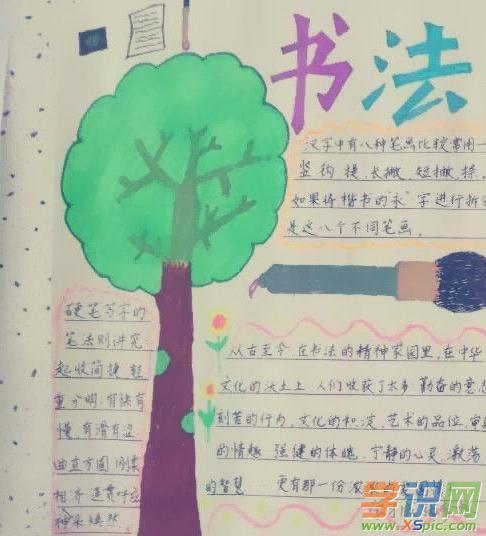 书法
汉字中有八种笔画比较常用一
竖 钩 提、长撇、短撇 捺、
如果将楷书的"永"字进行拆
是这八个不同笔画。
硬笔写字的
笔法则讲究
起收简捷 轻
重分明 有快有
慢 有滑有涩
曲直方圆 刚柔
相济 连贯呼应
神采焕然
从古至今 在书法的精神家园里,在中华
文化的沃土上 人们收获了太多 勤奋的意志
刻苦的行为、文化的积淀、艺术的品位、审
的情趣 强健的体魄、宁静的心灵、激荡
的智慧 更有那一份
学识网
www.XSpic.com